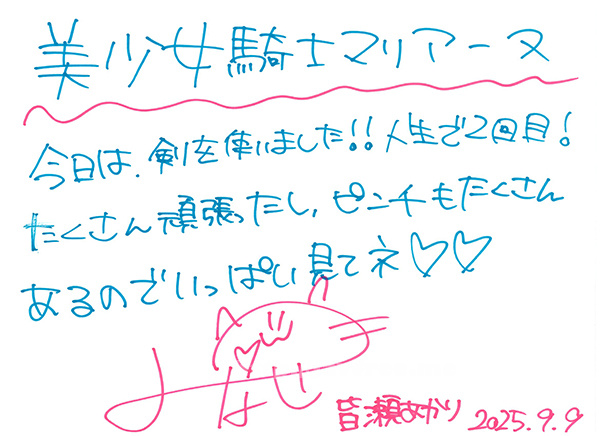 美少女騎士マリアーヌ
今日は、剣を使いました!!人生で2回目!
たくさん頑張ったし、ピンチもたくさん
あるのでいっぱい見てネ♡♡
みなせ
皆瀬あかり 2025.9.9